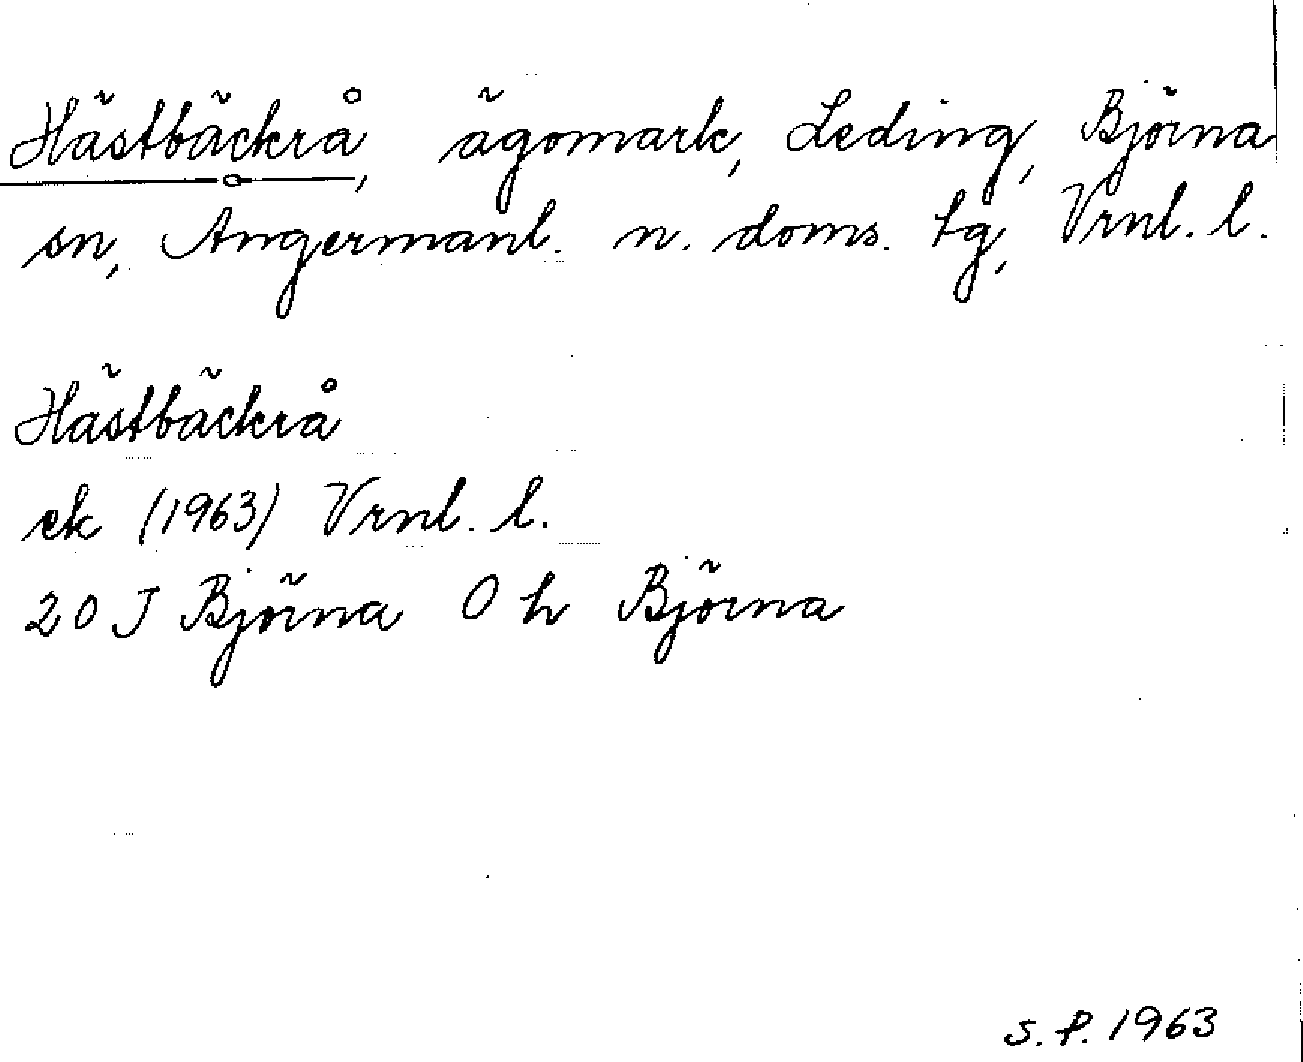 Hästbäckrå, ägomark, Leding, Björna
sn, Angermanl. n. doms. tg, Vrnl. l.
Hästbäckrå
ek (1963) Vrnl. l.
20 J Björna O h Björna
S.P. 1963